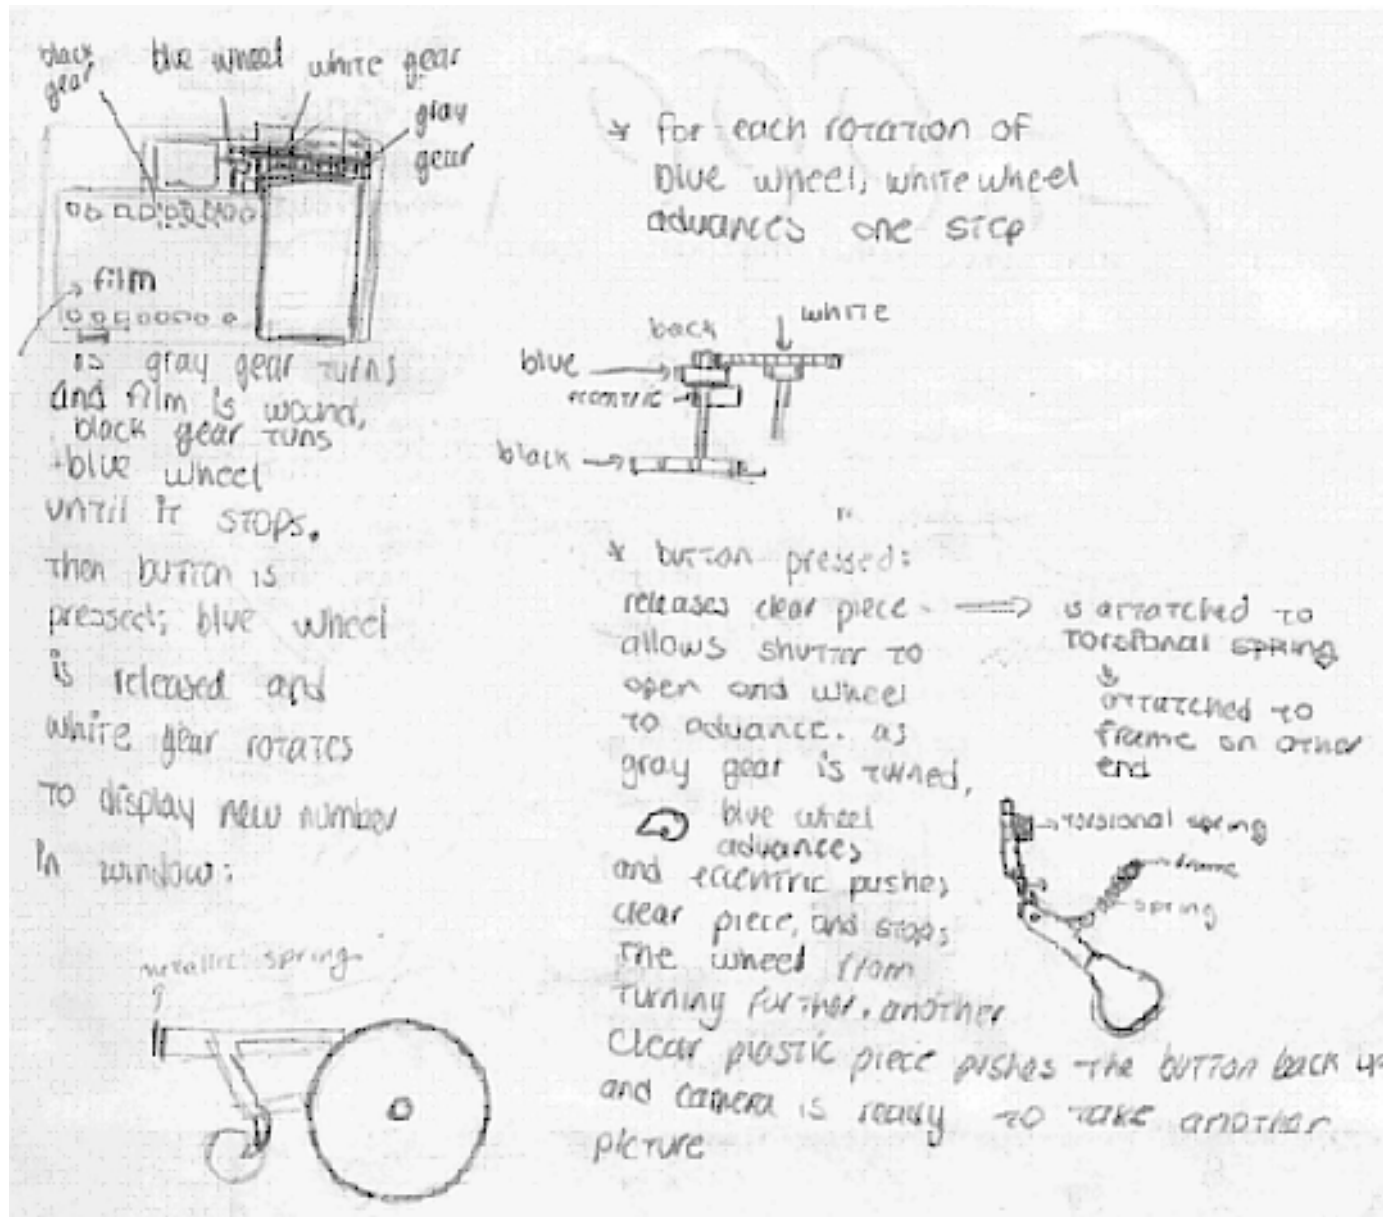 black gear
blue wheel
white gear
gray gear
film
as gray gear turns
and film is wound,
black gear turns
blue wheel
until it stops.
then button is
pressed; blue wheel
is released and
white gear rotates
to display new number
in window:
metallic spring
* for each rotation of
blue wheel, white wheel
advances one step
back
white
blue
eccentric
black
* button pressed:
releases clear piece
allows shutter to
open and wheel
to advance. as
gray gear is turned,
blue wheel
advances
and eccentric pushes
clear piece, and stops
the wheel from
turning further. another
clear plastic piece pushes the button back up
and camera is ready to take another
picture
is attatched to
torsional spring
attatched to
frame on other
end
torsional spring
frame
spring